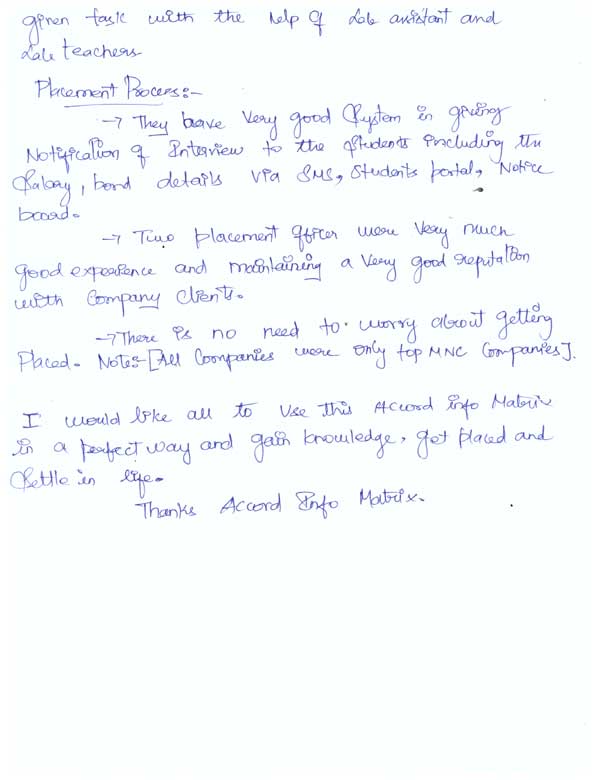 given task with the help of Lab assistant and
Lab teachers
Placement Process:-
→ They have very good System in giving
Notification of Interview to the Students including the
Salary, bond details via SMS, Students portal, Notice
board.
→ Two placement officer were very much
good experience and maintaining a very good reputation
with Company Clients.
→ There is no need to worry about getting
Placed. Note:-[All Companies were only top MNC Companies].
I would like all to use this Accord info Matrix
in a perfect way and gain knowledge, get placed and
Settle in life.
Thanks Accord Info Matrix.